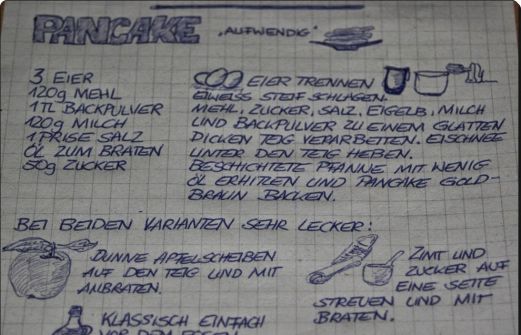 PANCAKE "AUFWENDIG"
3 EIER
120g MEHL
1 TL BACKPULVER
120g MILCH
1 PRISE SALZ
ÖL ZUM BRATEN
50g ZUCKER
EIER TRENNEN
EIWEISS STEIF SCHLAGEN.
MEHL, ZUCKER, SALZ, EIGELB, MILCH
UND BACKPULVER ZU EINEM GLATTEN
DICKEN TEIG VERARBEITEN. EISCHNEE
UNTER DEN TEIG HEBEN.
BESCHICHTETE PFANNE MIT WENIG
ÖL ERHITZEN UND PANCAKE GOLD-
BRAUN BACKEN.
BEI BEIDEN VARIANTEN SEHR LECKER:
DÜNNE APFELSCHEIBEN
AUF DEN TEIG UND MIT
ANBRATEN.
ZIMT UND
ZUCKER AUF
EINE SEITE
STREUEN UND MIT
BRATEN.
KLASSISCH EINFACH
VOR DEM ESSEN